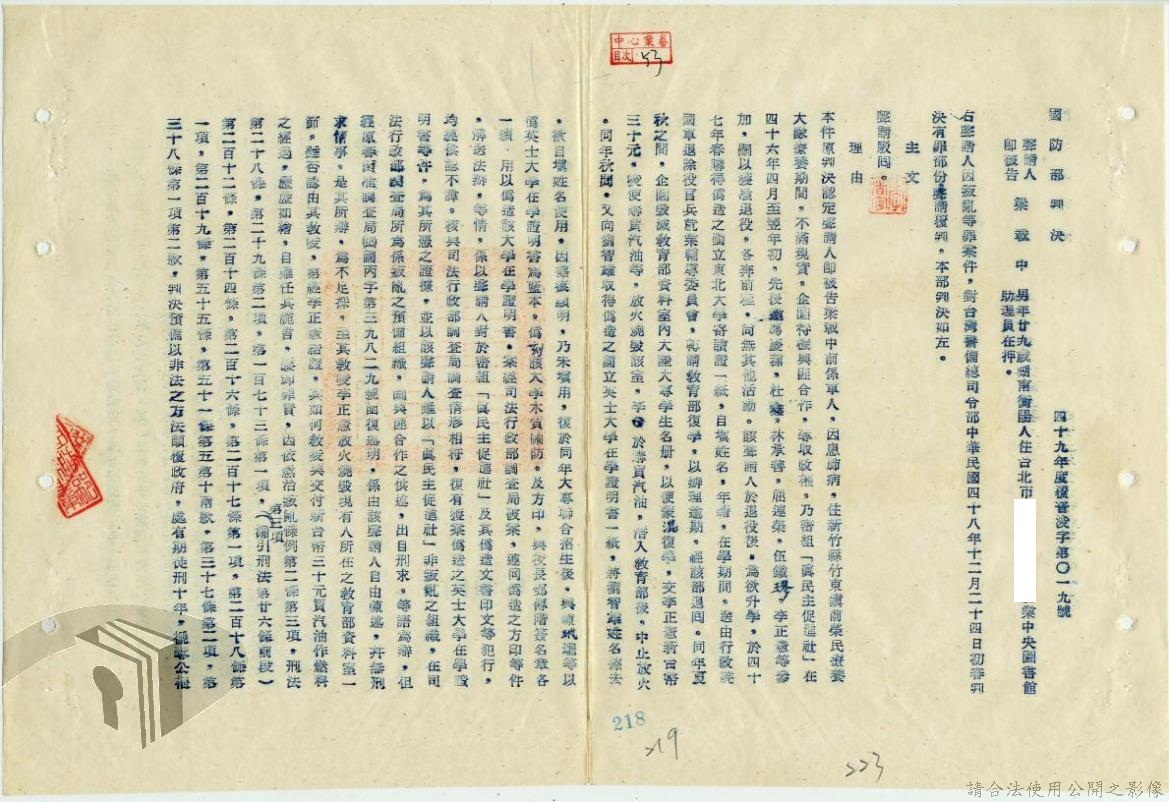 中心案卷
目次 53
國防部判決
四十九年度覆普淩字第〇一九號
聲請人
即被告 梁戰中 男年廿九歲湖南衡陽人住台北市
業中央圖書館
助理員在押。
右聲請人因叛亂等罪案件，對台灣警備總司令部中華民國四十八年十二月二十四日初審判
決有罪部份聲請覆判，本部判決如左。
主文
聲請駁回。
理由
本件原判決認定聲請人即被告梁戰中前係軍人，因患肺病，住新竹縣竹東鎮前榮民療養
大隊療養期間，不滿現實，企圖將來與匪合作，爭取政權，乃密組「眞民主促進社」在
四十六年四月至翌年初，先後邀 慶 ，杜 ，林承善，屈運榮，伍 ，李正憲等參
加，嗣以獲准退役，各奔前程，尚無其他活動。該聲請人於退役後，爲欲升學，於四十
七年春購得僞造之國立東北大學審讀證一紙，自填姓名，年齡，在學期間，送由行政院
國軍退除役官兵就業輔導委員會，轉請教育部復學，以辦理逾期，經該部退回。同年夏
秋之間，企圖毀滅教育部資料室內大陸大專學生名册，以便蒙混復學，交李正憲新台幣
三十元，唆使購買汽油等，放火燒毀該室，李 於購買汽油，潛入教育部後，中止放火
。同年秋間，又向劉智雄取得僞造之國立英士大學在學證明書一紙，將劉智雄姓名擦去
，欲自填姓名使用，因擦痕顯明，乃未填用，復於同年大專聯合招生後，與 等以
僞英士大學在學證明書爲藍本，僞刻該大學木質關防，及方印，與校長鄧傳楷簽名章各
一顆，用以僞造該大學在學證明書。案經司法行政部調查局破案，連同僞造之方印等件
，解送法辦，等情，係以聲請人對於密組「眞民主促進社」及其僞造文書印文等犯行，
均經供認不諱，核與司法行政部調查局調查情形相符，復有獲案僞造之英士大學在學證
明書等件，爲其所憑之證據，並以該聲請人雖以「眞民主促進社」非叛亂之組織，在司
法行政部調查局所爲係叛亂之預備組織，圖與匪合作之供述，出自刑求，等語爲辯，但
經原審函准調查局 丙字第三九八二九號函復送明，係由該聲請人自由陳述，幷無刑
求情事。是其所辯，爲不足採，至其教唆李正憲放火燒毀現有人所在之教育部資料室一
節，雖否認由其教唆，第經李正憲結證，其如何教唆與交付新台幣三十元買汽油作燃料
之經過，歷歷如繪，自難任其詭言，諉卸罪責，因依懲治叛亂條例第二條第三項，刑法
第二十八條，第二十九條第二項，第一百七十三條第一項，第三項（漏引刑法第廿六條前段）
第二百十二條，第二百十四條，第二百十六條，第二百十七條第一項，第二百十八條第
一項，第二百十九條，第五十五條，第五十一條第五第十兩款，第三十七條第二項，第
三十八條第一項第二款，判決預備以非法之方法顛覆政府，處有期徒刑十年，褫奪公權
218
219
223
請合法使用公開之影像